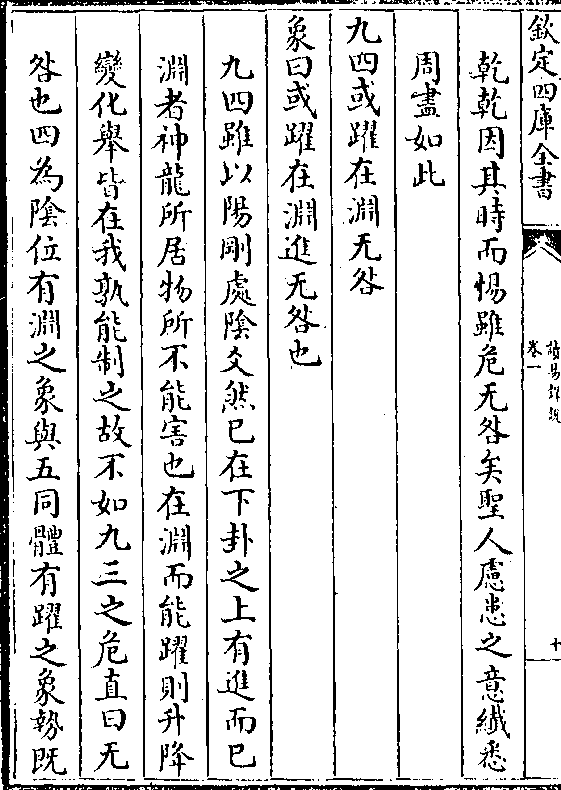 欽定四庫全書
讀易詳說
卷一
十
乾乾因其時而惕雖危无咎矣聖人慮患之意纎悉
周盡如此
九四或躍在淵无咎
象曰或躍在淵進无咎也
九四雖以陽剛處陰爻然已在下卦之上有進而已
淵者神龍所居物所不能害也在淵而能躍則升降
變化舉皆在我孰能制之故不如九三之危直曰无
咎也四為陰位有淵之象與五同體有躍之象勢既